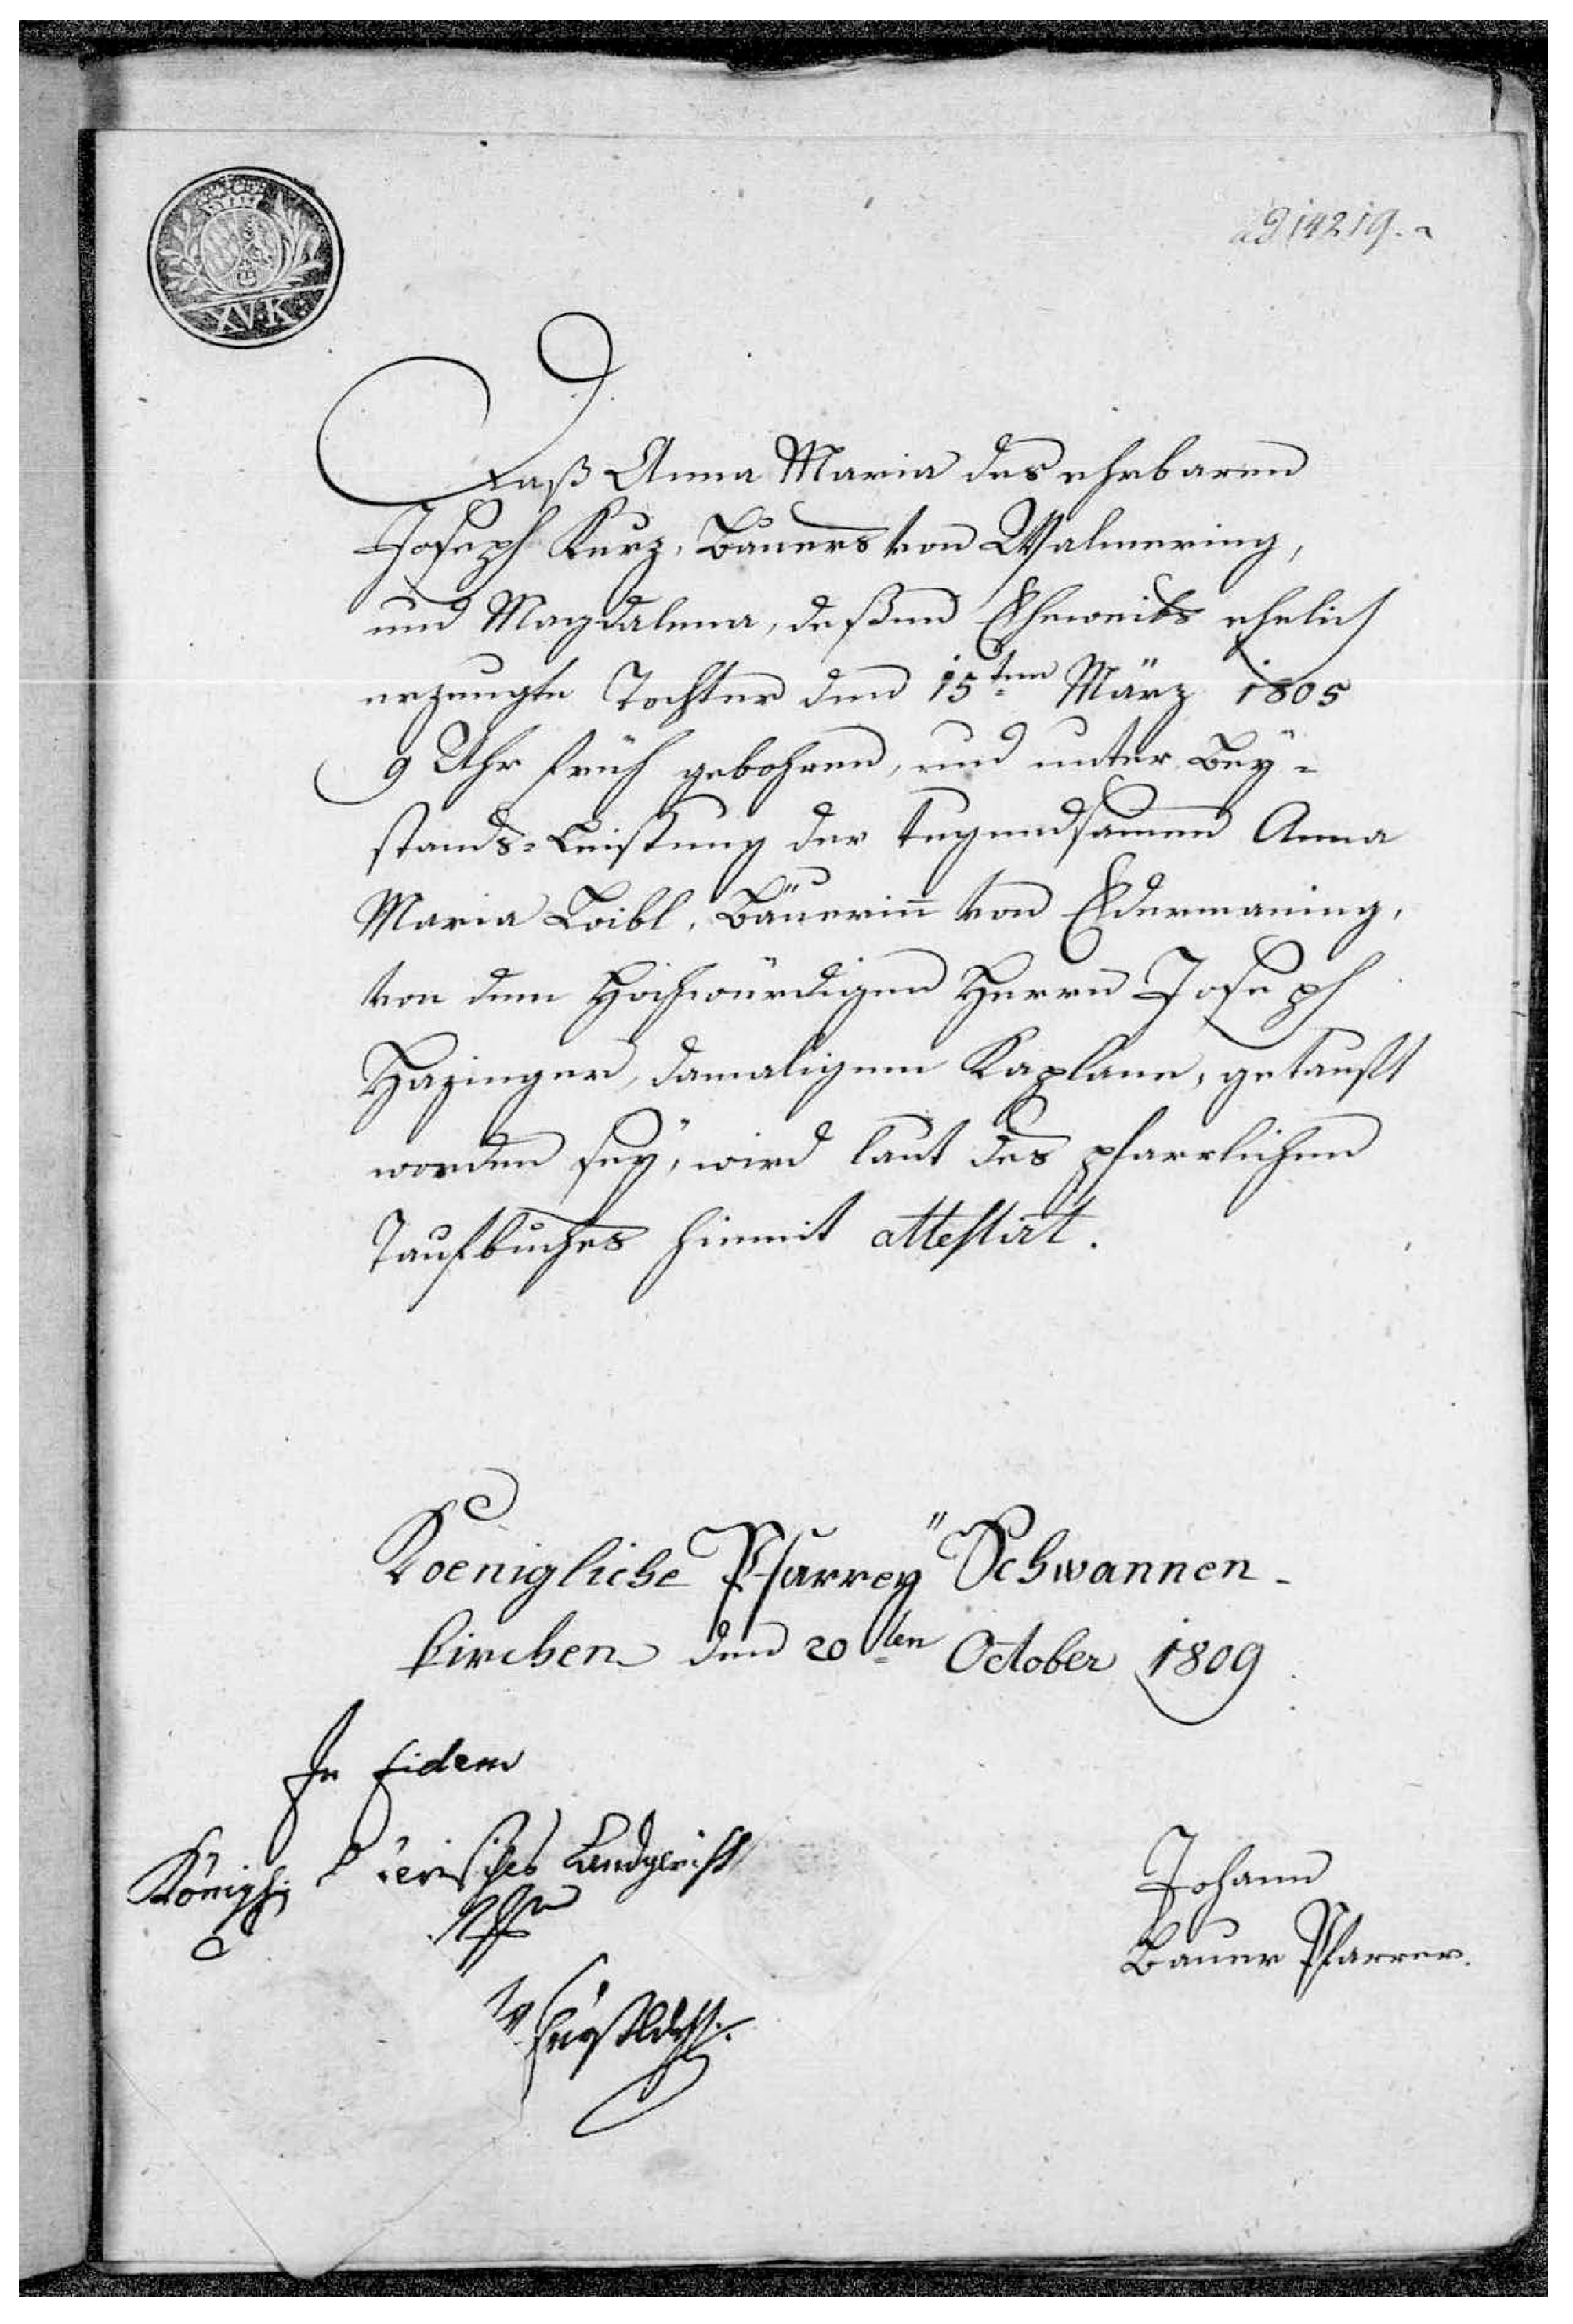 ad 14219.
XV.K.
Daß Anna Maria des ehrbaren
Joseph Kurz, Bauers von Walmering,
und Magdalena, deßen Eheweibs ehelich
erzeugte Tochter den 15ten März 1805
9 Uhr früh gebohren, und unter Bey=
stands=Leistung der tugendsamen Anna
Maria Loibl, Bäuerinn von Edermaning,
von dem Hochwürdigen Herrn Joseph
Hazinger, damaligem Kaplane, getauft
worden sey, wird laut des pfarrlichen
Taufbuches hiemit attestirt.
Koenigliche Pfarrey Schwannen-
kirchen den 20ten October 1809
In fidem
Königl. Landgericht
Johann
Bauer Pfarrer.